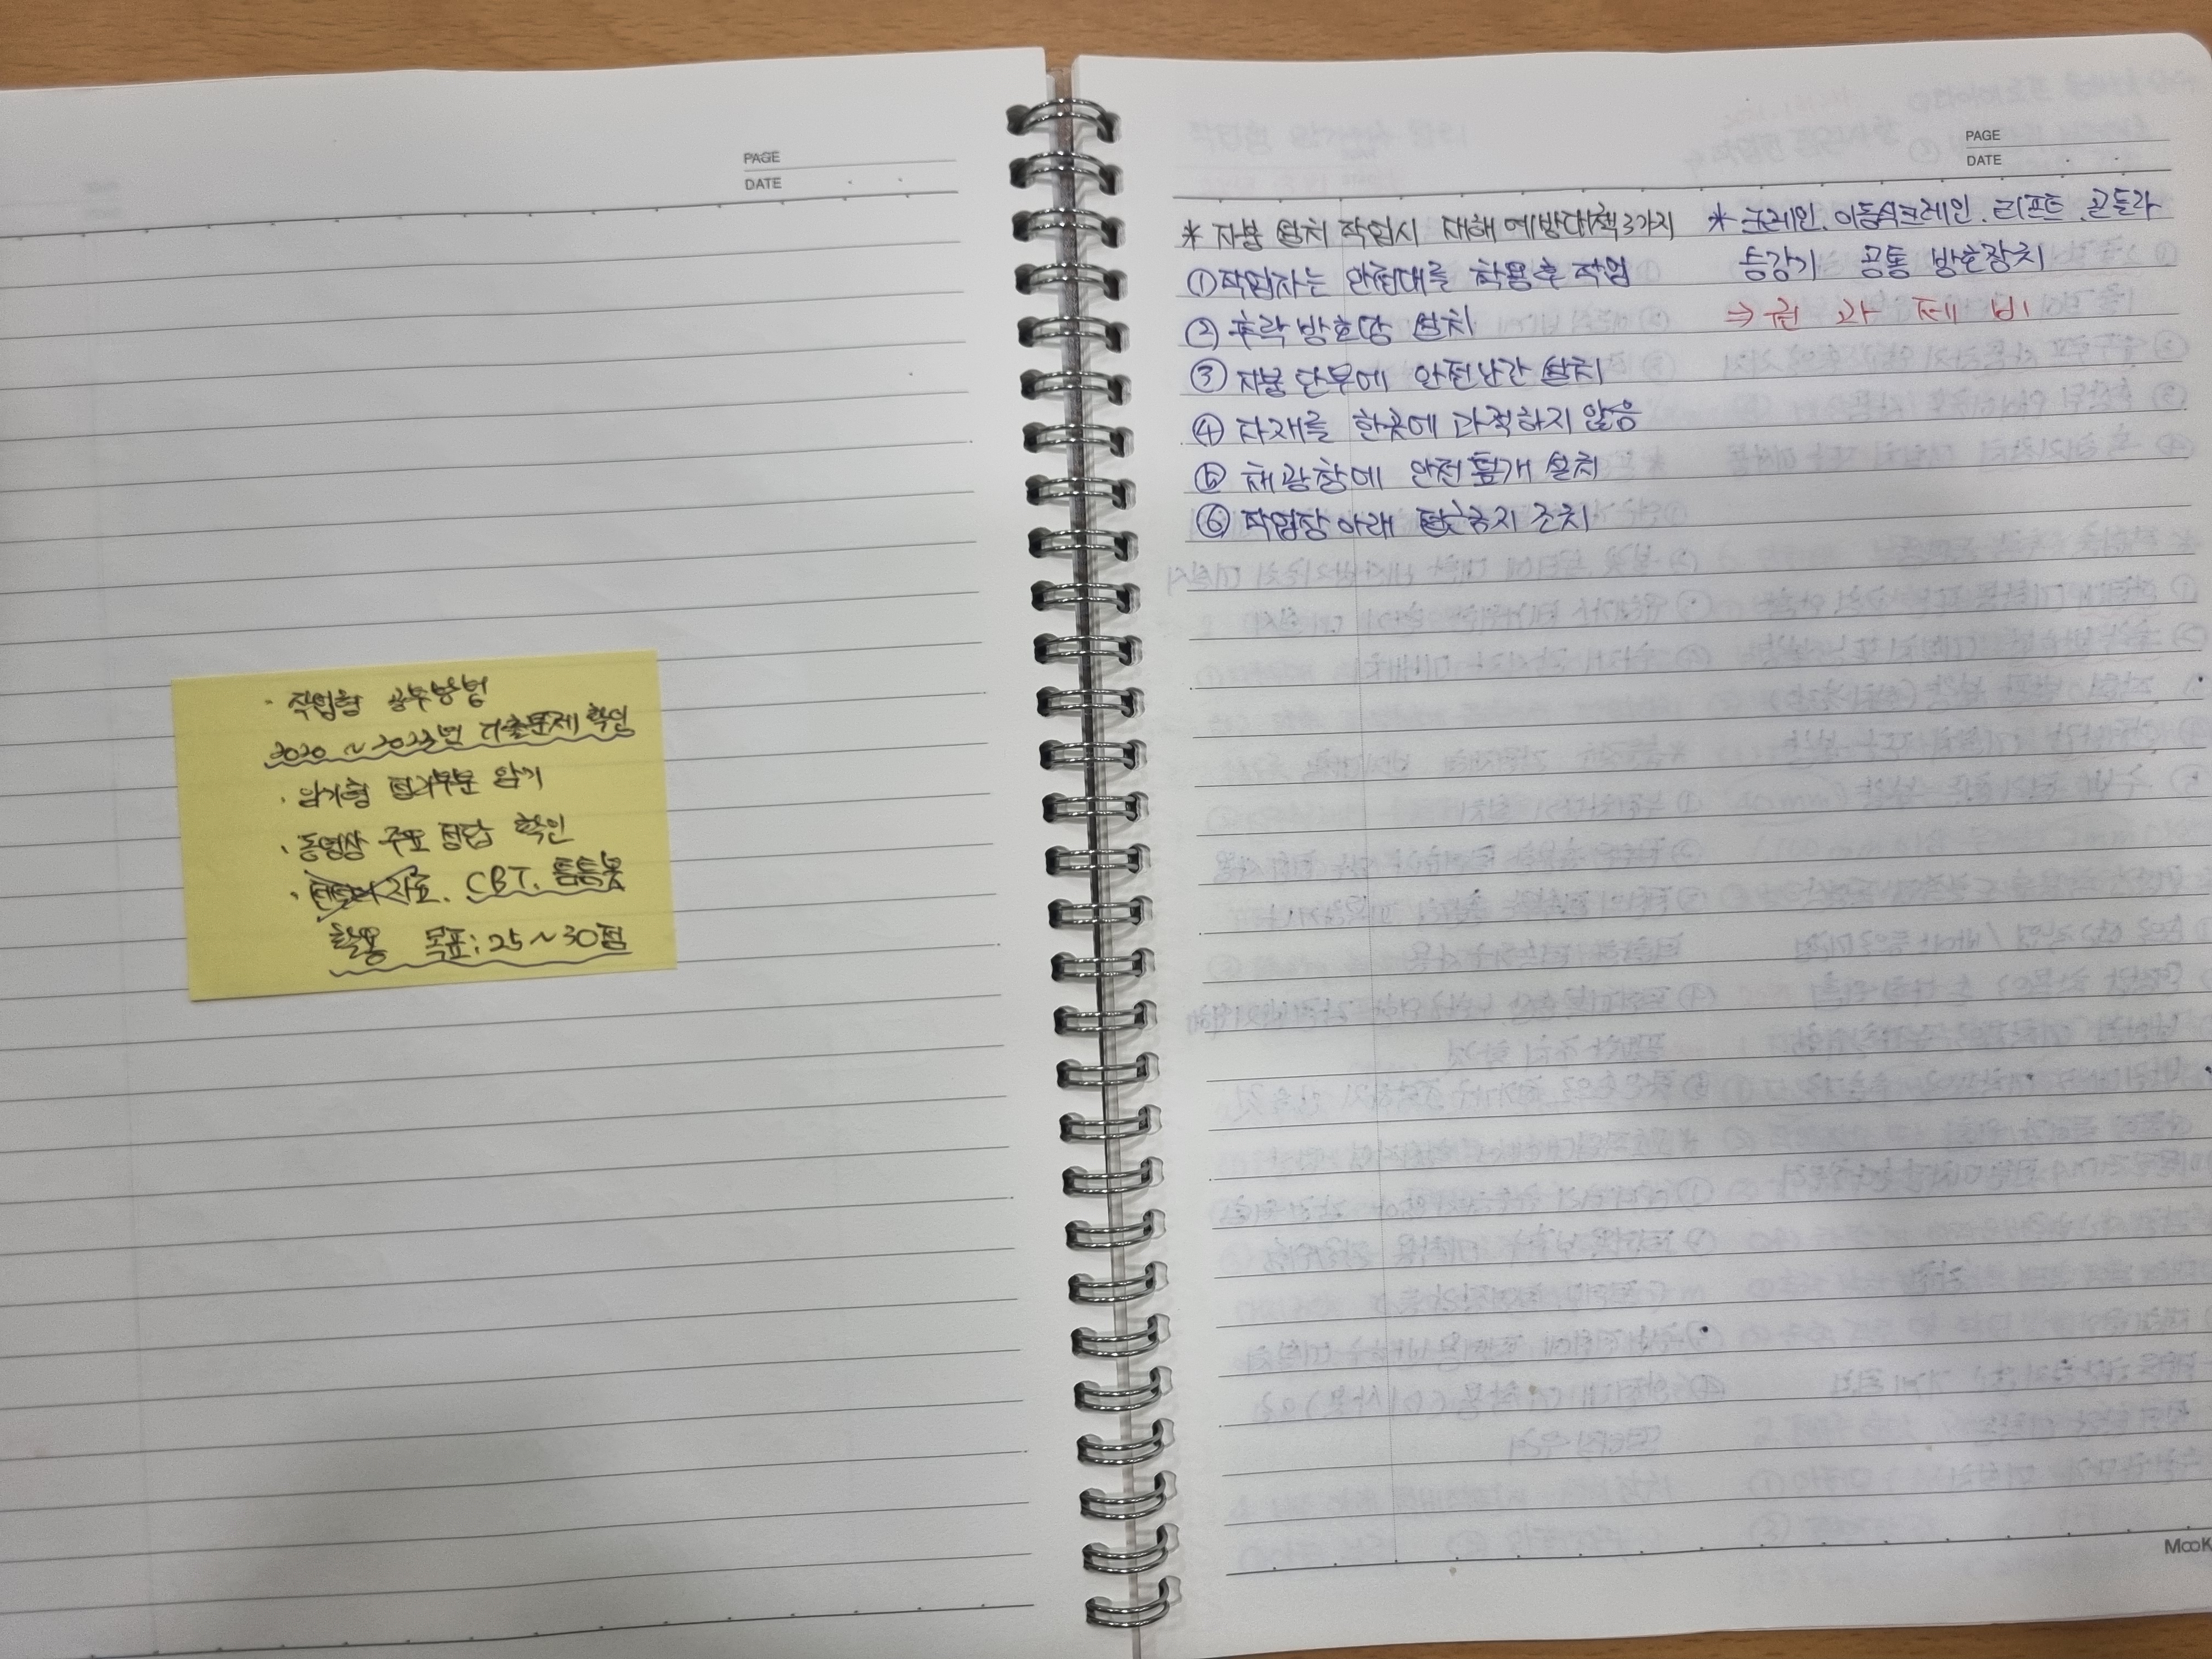 PAGE
DATE
· 작업형 공부방법
2020 ~ 2023년 기출문제 확인
· 암기형 필기부분 암기
· 동영상 구도 정답 확인
· 자료. CBT. 틈틈봇
활용 목표: 25~30점
PAGE
DATE
* 지붕 설치 작업시 재해예방대책 3가지
① 작업자는 안전대를 착용 후 작업
② 추락방호망 설치
③ 지붕 단부에 안전난간 설치
④ 자재를 한곳에 과적하지 않음
⑤ 채광창에 안전덮개 설치
⑥ 작업장 아래 출입금지 조치
* 크레인. 이동식크레인. 리프트. 곤돌라
승강기 공통 방호장치
⇒ 권 과 제 비
MooK